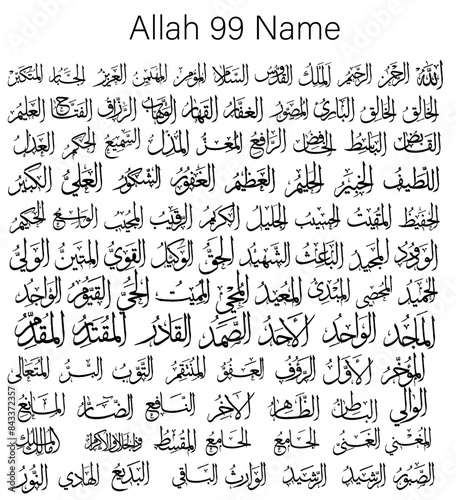 Allah 99 Name
الله الرحمن الرحيم الملك القدوس السلام المؤمن المهيمن العزيز الجبار المتكبر
الخالق الخالق البارئ المصور الغفار القهار الوهاب الرزاق الفتاح العليم
القابض الباسط الخافض الرافع المعز المذل السميع الحكم العدل
اللطيف الخبير الحليم العظيم الغفور الشكور العلي الكبير
الحفيظ المقيت الحسيب الجليل الكريم الرقيب المجيب الواسع الحكيم
الودود المجيد الباعث الشهيد الحق الوكيل القوي المتين الولي
الحميد المحصي المبدئ المعيد المحيي المميت الحي القيوم الواجد
الماجد الواحد الأحد الصمد القادر المقتدر المقدم
المؤخر الأول الرؤوف العفو المنتقم التواب البر المتعالي
الوالي الباطن الظاهر الآخر النافع الضار المانع
المغني الغني الجامع الجامع المقسط ذو الجلال والإكرام مالك الملك
الصبور الرشيد الرشيد الوارث الباقي البديع الهادي النور
Adobe Stock
#843372357